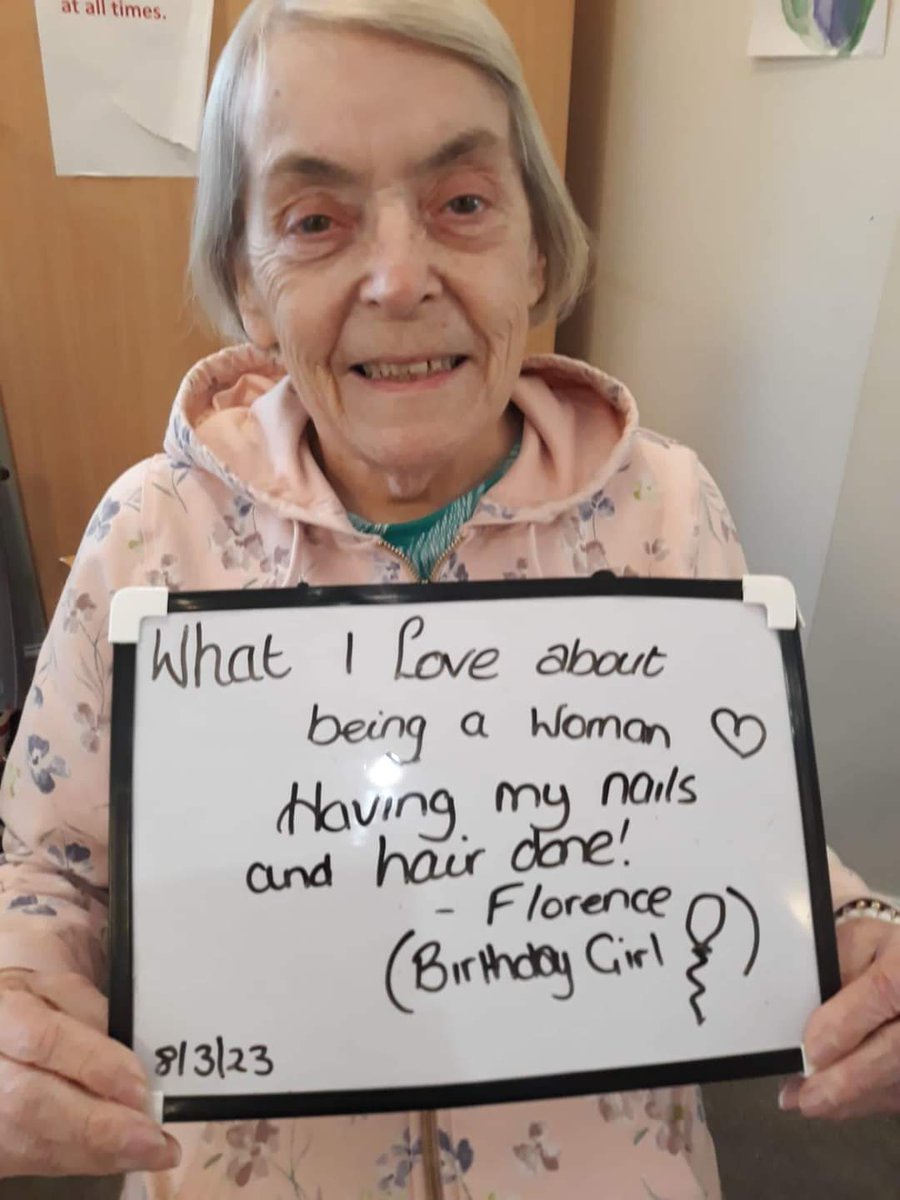 at all times.
What I Love about
being a Woman ♡
Having my nails
and hair done!
- Florence
(Birthday Girl )
8/3/23